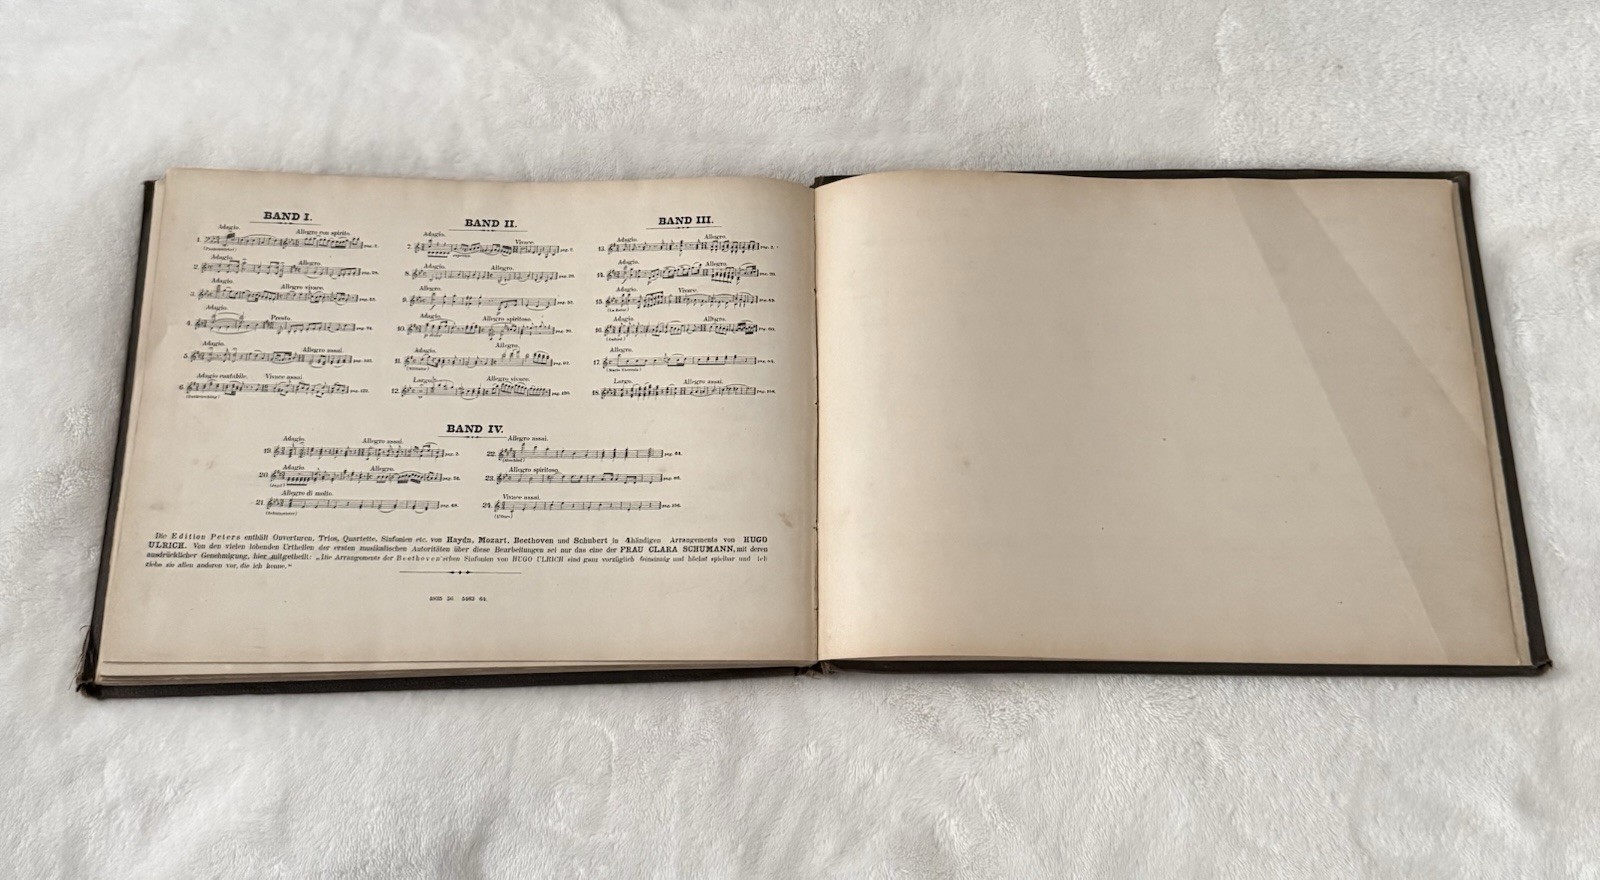 BAND I.
Adagio. Allegro con spirito.
1.
Adagio. Allegro.
2.
Adagio. Allegro vivace.
3.
Adagio. Presto.
4.
Adagio. Allegro assai.
5.
Adagio cantabile. Vivace assai.
6.
BAND II.
Adagio. Vivace.
7. pag. 2.
Adagio. Allegro.
8.
Allegro.
9.
Adagio. Allegro spiritoso.
10.
Adagio. Allegro.
11.
Largo. Allegro vivace.
12.
BAND III.
Adagio. Allegro.
13. pag. 2.
Adagio. Allegro.
14.
Adagio. Vivace.
15.
(La Reine)
Adagio. Allegro.
16.
Allegro.
17.
(Maria Theresia)
Largo. Allegro assai.
18.
BAND IV.
Adagio. Allegro assai.
19. pag. 2.
Adagio. Allegro.
20.
Allegro di molto.
21.
Allegro assai.
22.
Allegro spiritoso.
23.
Vivace assai.
24.
Die Edition Peters enthält Ouverturen, Trios, Quartette, Sinfonien etc. von Haydn, Mozart, Beethoven und Schubert in 4händigen Arrangements von HUGO
ULRICH. Von den vielen lobenden Urtheilen der ersten musikalischen Autoritäten über diese Bearbeitungen sei nur das eine der FRAU CLARA SCHUMANN, mit deren
ausdrücklicher Genehmigung, hier mitgetheilt: „Die Arrangements der Beethoven'schen Sinfonien von HUGO ULRICH sind ganz vorzüglich feinsinnig und höchst spielbar und ich
ziehe sie allen anderen vor, die ich kenne."